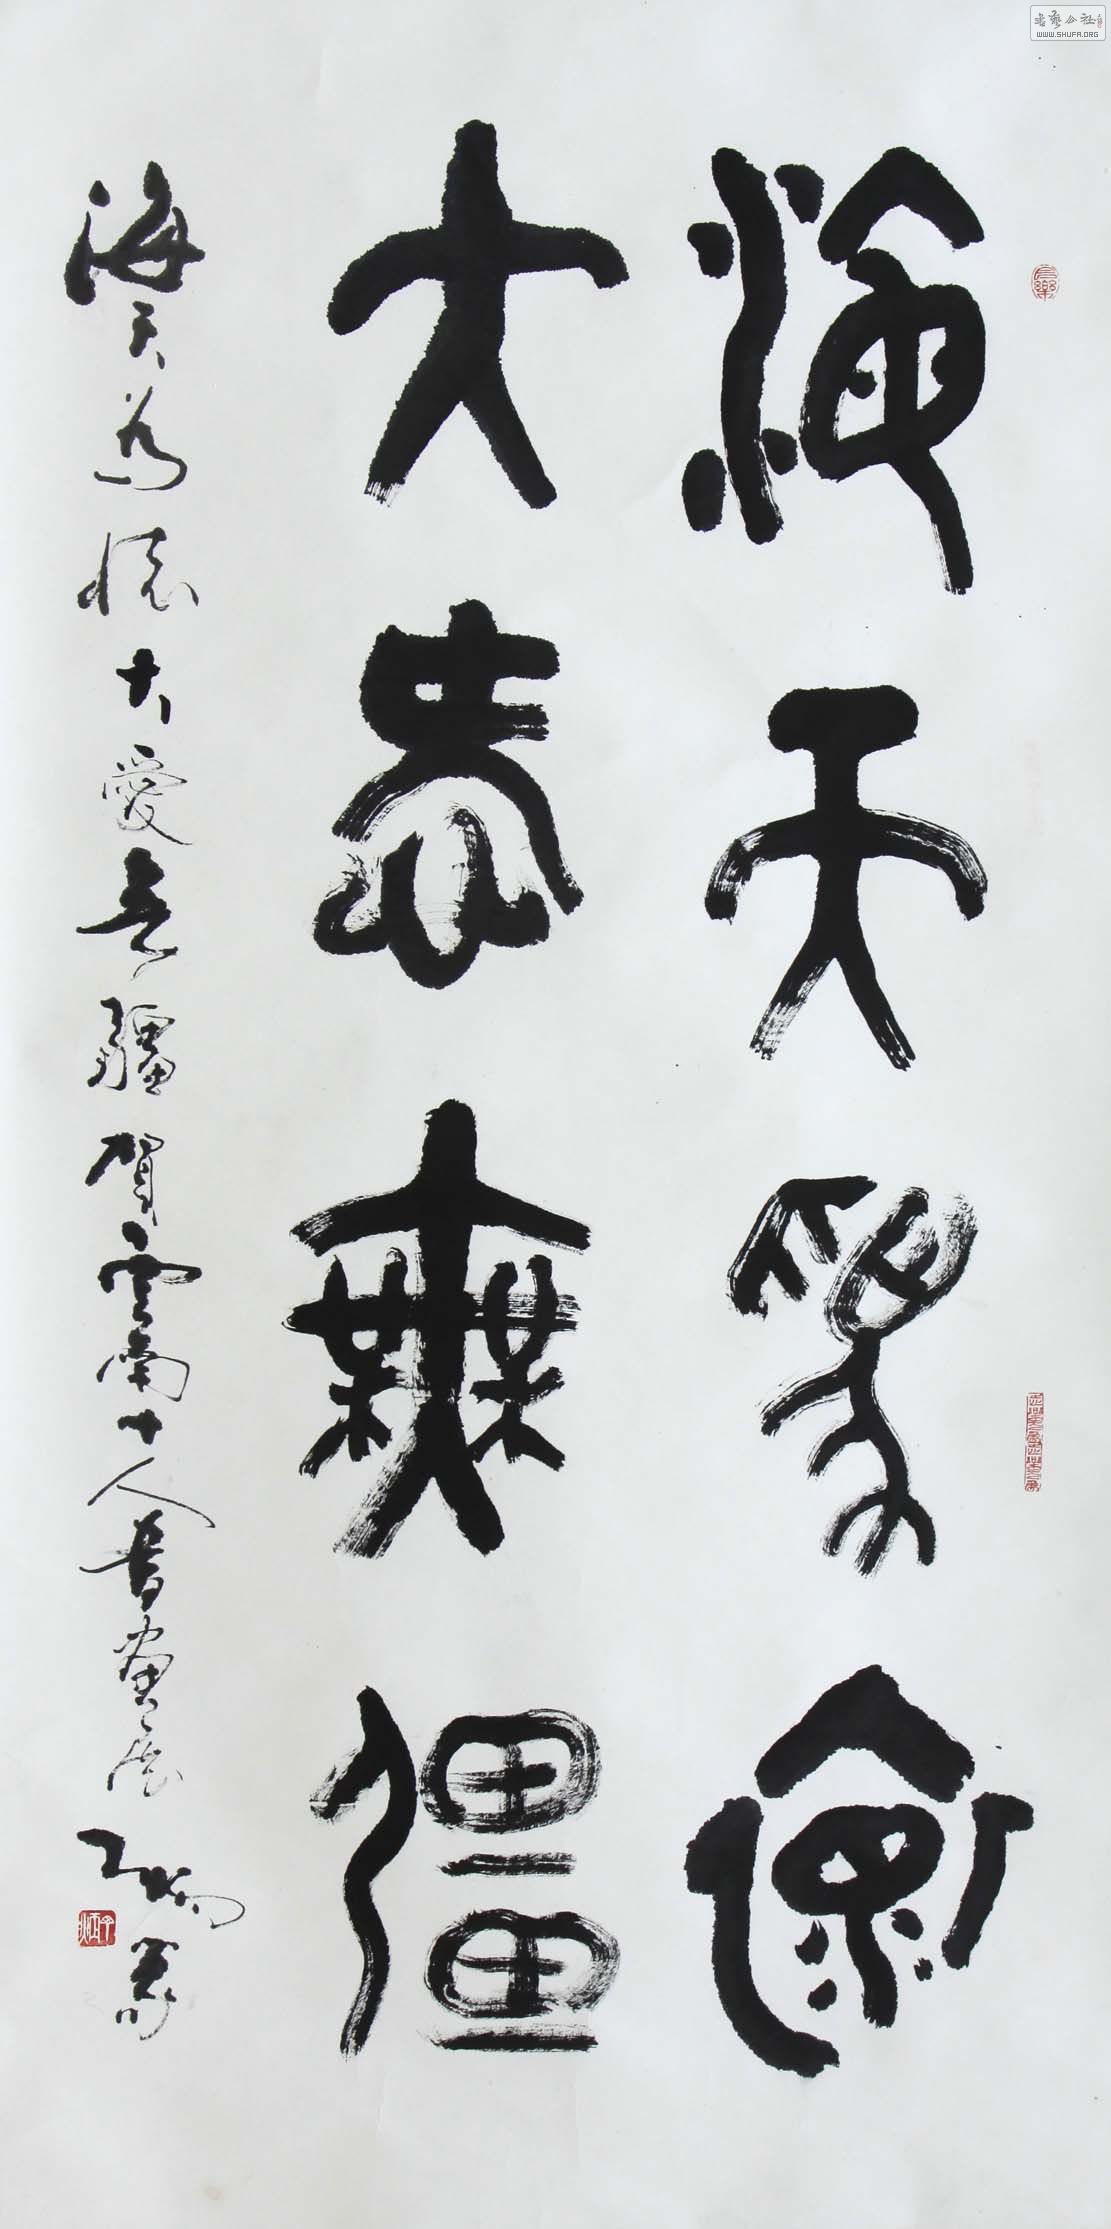 海天為褱
大愛無疆
海天為懷大愛無疆賀雲南十人書畫展
書藝公社
WWW.SHUFA.ORG